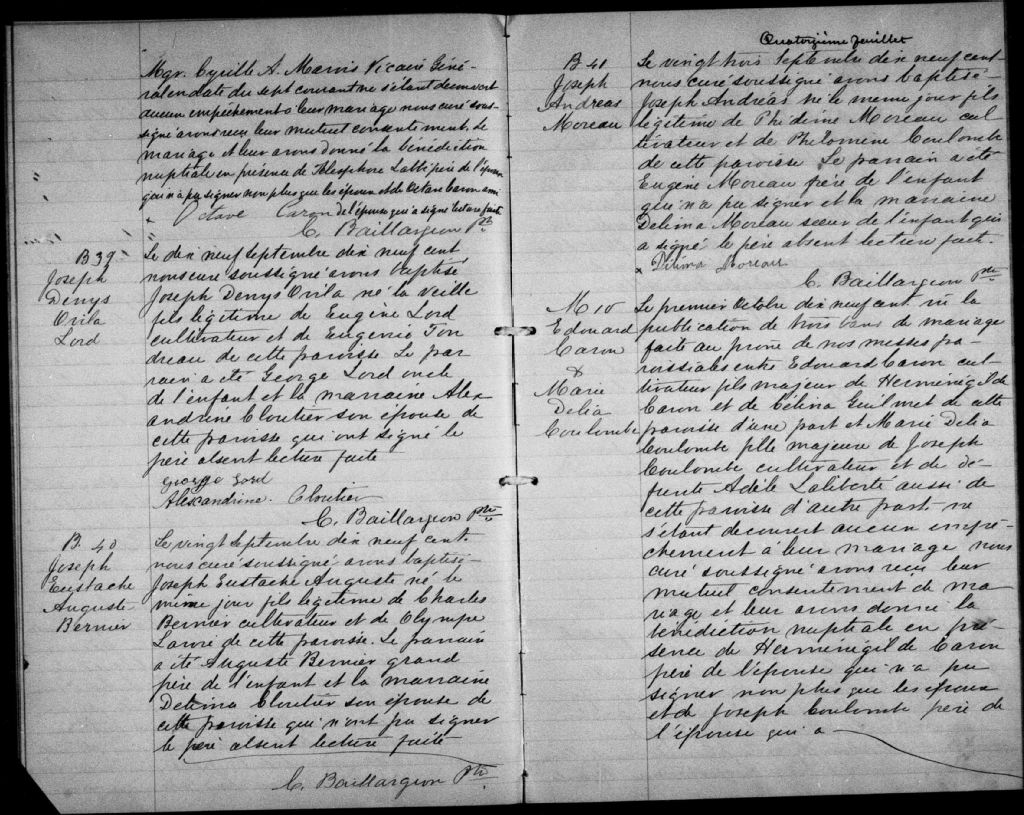 Mgr. Cyrille A. Marois Vicaire Géné-
ral en date du sept courant ne s'étant découvert
aucun empêchement à leur mariage nous curé sous-
signé avons reçu leur mutuel consentement de
mariage et leur avons donné la bénédiction
nuptiale en présence de Télesphore Labbé père de l'époux
qui n'a pu signer non plus que les époux et de Octave Caron ami
de l'épouse qui a signé lecture faite
Octave Caron
C. Baillargeon Ptre
B 39
Joseph
Denys
Ovila
Lord
Le dix neuf Septembre dix neuf cent
nous curé soussigné avons baptisé
Joseph Denys Ovila né la veille
fils légitime de Eugène Lord
cultivateur et de Eugénie Fon
dreau de cette paroisse Le par
rain a été George Lord oncle
de l'enfant et la marraine Alex
andrine Cloutier son épouse de
cette paroisse qui ont signé le
père absent lecture faite
George Lord
Alexandrine Cloutier
C. Baillargeon Ptre
B. 40
Joseph
Eustache
Auguste
Bernier
Le vingt Septembre dix neuf cent
nous curé soussigné avons baptisé
Joseph Eustache Auguste né le
même jour fils légitime de Charles
Bernier cultivateur et de Olympe
de cette paroisse. Le parrain
a été Auguste Bernier grand
père de l'enfant et la marraine
Delima Cloutier son épouse de
cette paroisse qui n'ont pu signer
le père absent lecture faite
C. Baillargeon Ptre
Quatorzième feuillet
B 41
Joseph
Andréas
Moreau
Le vingt trois Septembre dix neuf cent
nous curé soussigné avons baptisé
Joseph Andréas né le même jour fils
légitime de Phidime Moreau cul
tivateur et de Philomène Coulombe
de cette paroisse Le parrain a été
Eugène Moreau frère de l'enfant
qui n'a pu signer et la marraine
Délima Moreau sœur de l'enfant qui
a signé le père absent lecture faite.
x Délima Moreau
C. Baillargeon Ptre
M 10
Edouard
Caron
&
Marie
Delia
Coulombe
Le premier Octobre dix neuf cent vu la
publication de trois bans de mariage
faite au prône de nos messes pa-
roissiales entre Edouard Caron cul
tivateur fils majeur de Herménégil de
Caron et de Célina Guilmet de cette
paroisse d'une part et Marie Delia
Coulombe fille majeure de Joseph
Coulombe cultivateur et de dé-
funte Adèle Laliberté aussi de
cette paroisse d'autre part ne
s'étant découvert aucun empê-
chement à leur mariage nous
curé soussigné avons reçu leur
mutuel consentement de ma
riage et leur avons donné la
bénédiction nuptiale en pré-
sence de Herménégil de Caron
père de l'épouse qui n'a pu
signer non plus que les époux
et de Joseph Coulombe père de
l'épouse qui a